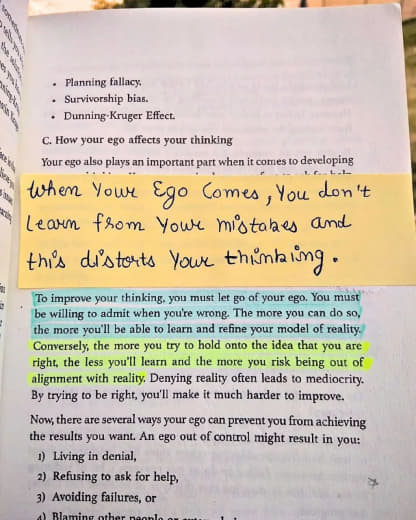 • Planning fallacy.
• Survivorship bias.
• Dunning-Kruger Effect.
C. How your ego affects your thinking
Your ego also plays an important part when it comes to developing
When Your Ego Comes, You don't
Learn from Your mistakes and
this distorts Your thinking.
To improve your thinking, you must let go of your ego. You must
be willing to admit when you're wrong. The more you can do so,
the more you'll be able to learn and refine your model of reality.
Conversely, the more you try to hold onto the idea that you are
right, the less you'll learn and the more you risk being out of
alignment with reality. Denying reality often leads to mediocrity.
By trying to be right, you'll make it much harder to improve.
Now, there are several ways your ego can prevent you from achieving
the results you want. An ego out of control might result in you:
1) Living in denial,
2) Refusing to ask for help,
3) Avoiding failures, or
4) Blaming other people